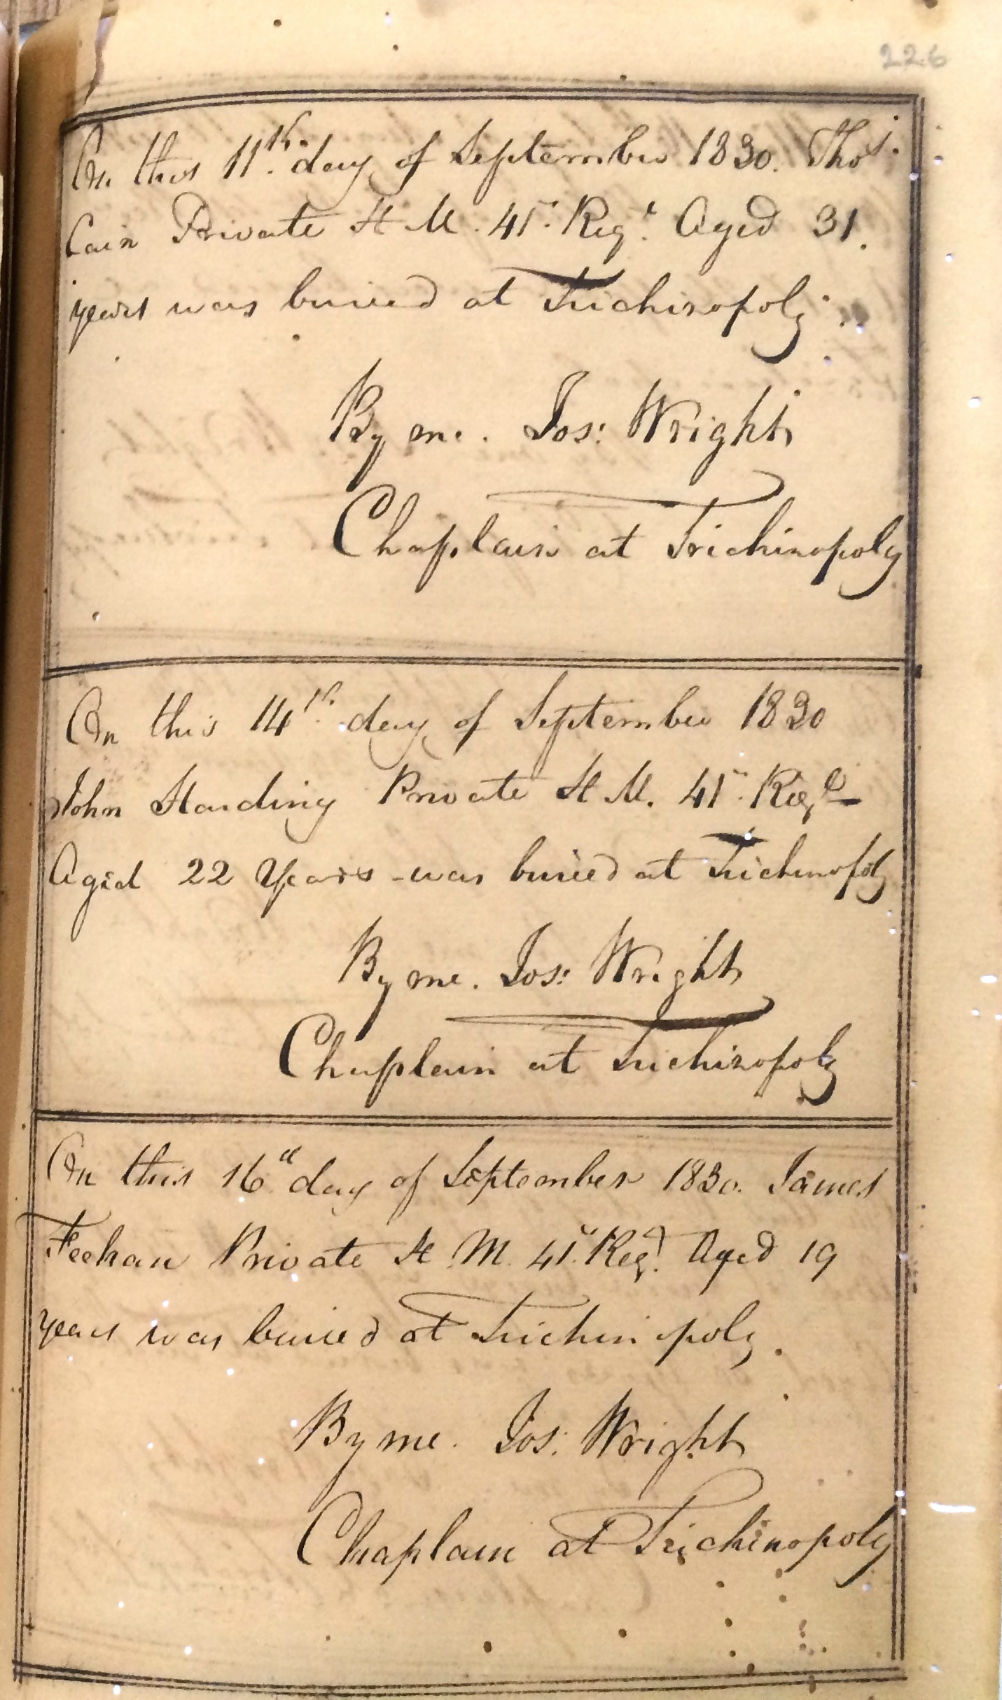 226
On this 11th day of September 1830. Thos.
Cain Private H. M. 41st. Regt. Aged 31.
years was buried at Trichinopoly.
By me. Jos: Wright
Chaplain at Trichinopoly
On this 14th. day of September 1830
John Harding Private H. M. 41st. Regt
Aged 22 Years was buried at Trichinopoly
By me. Jos: Wright
Chaplain at Trichinopoly
On this 16th day of September 1830. James
Feehan Private H. M. 41st. Regt. Aged 19
years was buried at Trichinopoly.
By me. Jos: Wright
Chaplain at Trichinopoly